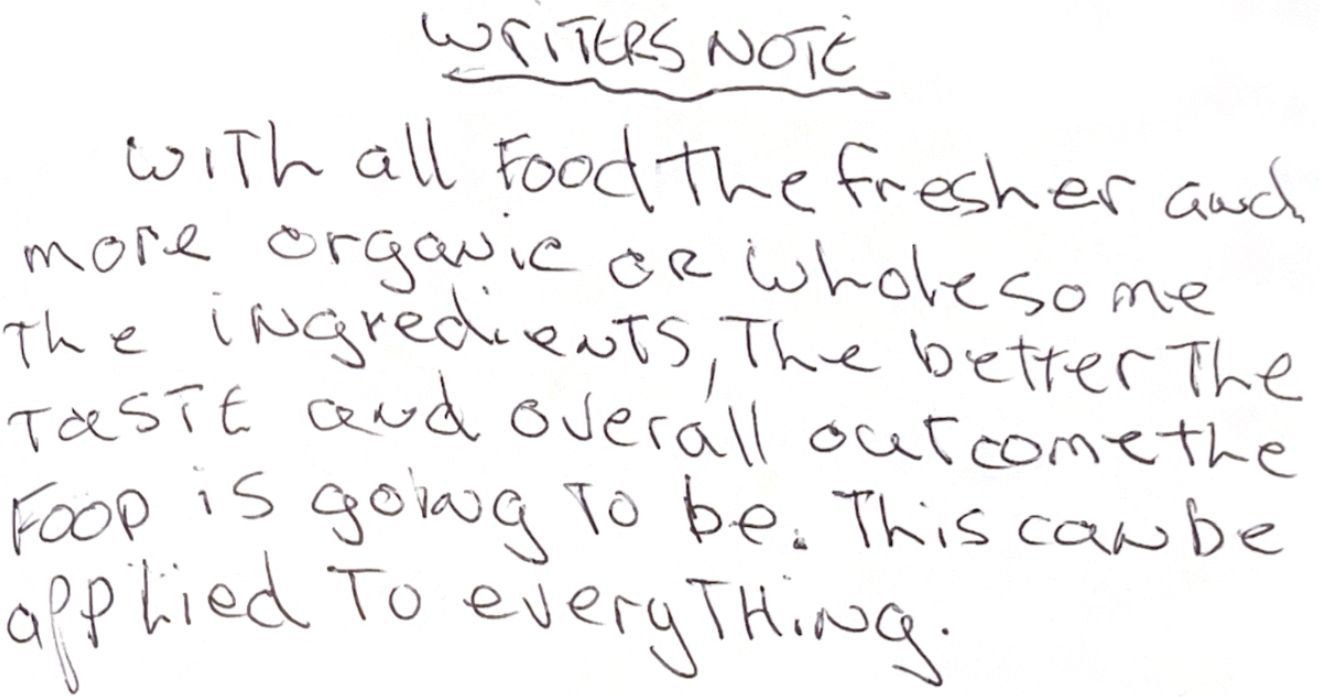 WRITERS NOTE
with all Food the fresher and
more organic or wholesome
The ingredients, The better The
TasTE and overall outcome the
FOOD is going To be. This can be
applied To everyTHiNg.